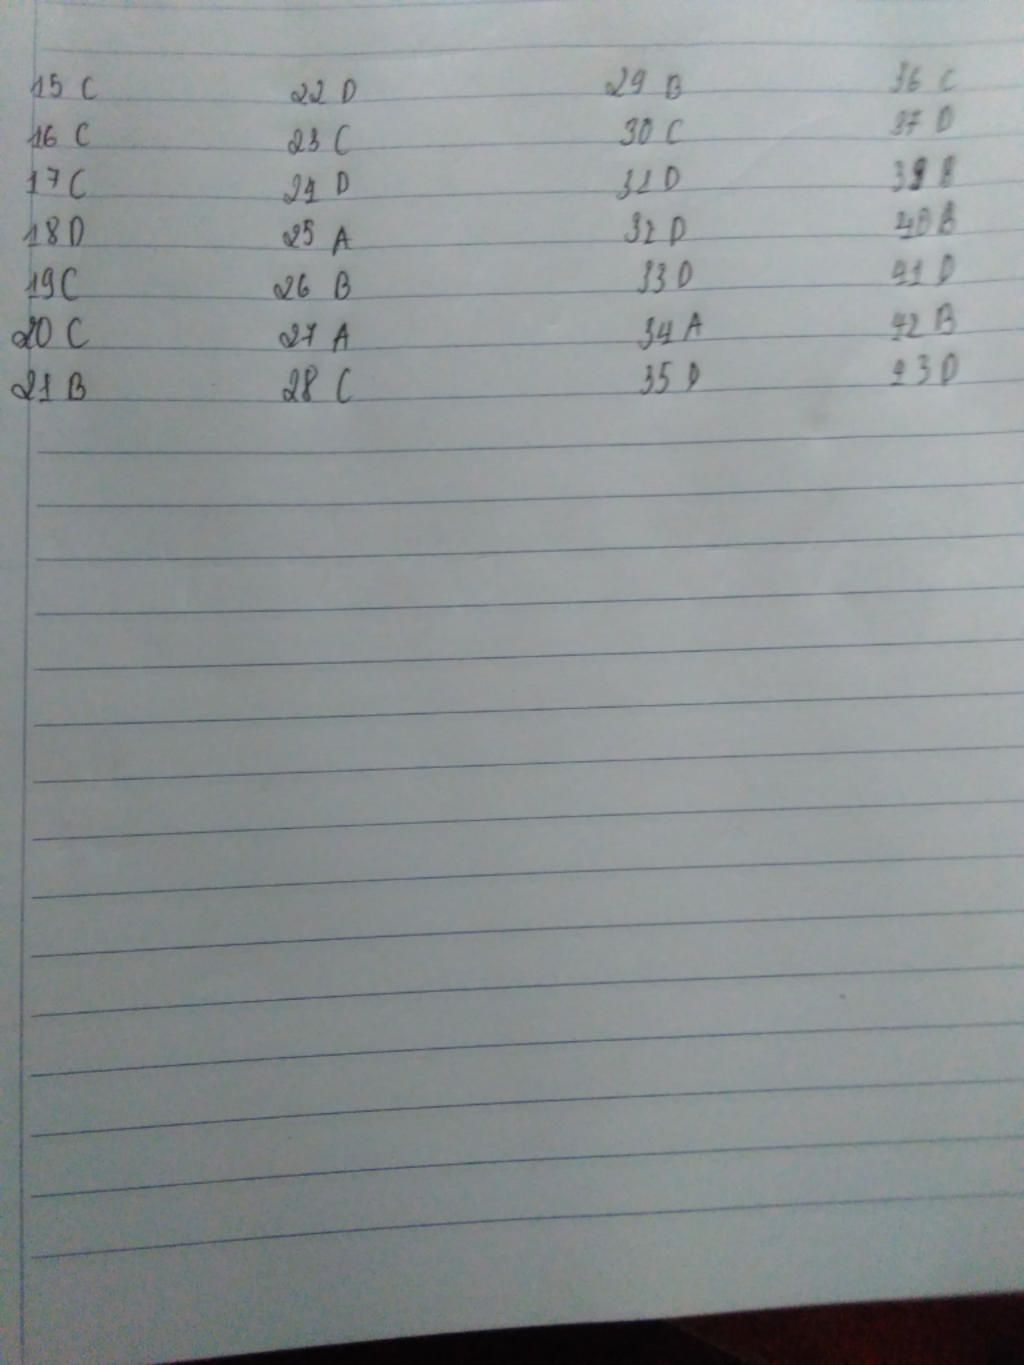 15 C 22 D 29 B 36 C
16 C 23 C 30 C 37 D
17 C 24 D 31 D 39 B
18 D 25 A 32 D 40 B
19 C 26 B 33 D 41 D
20 C 27 A 34 A 42 B
21 B 28 C 35 D 43 D